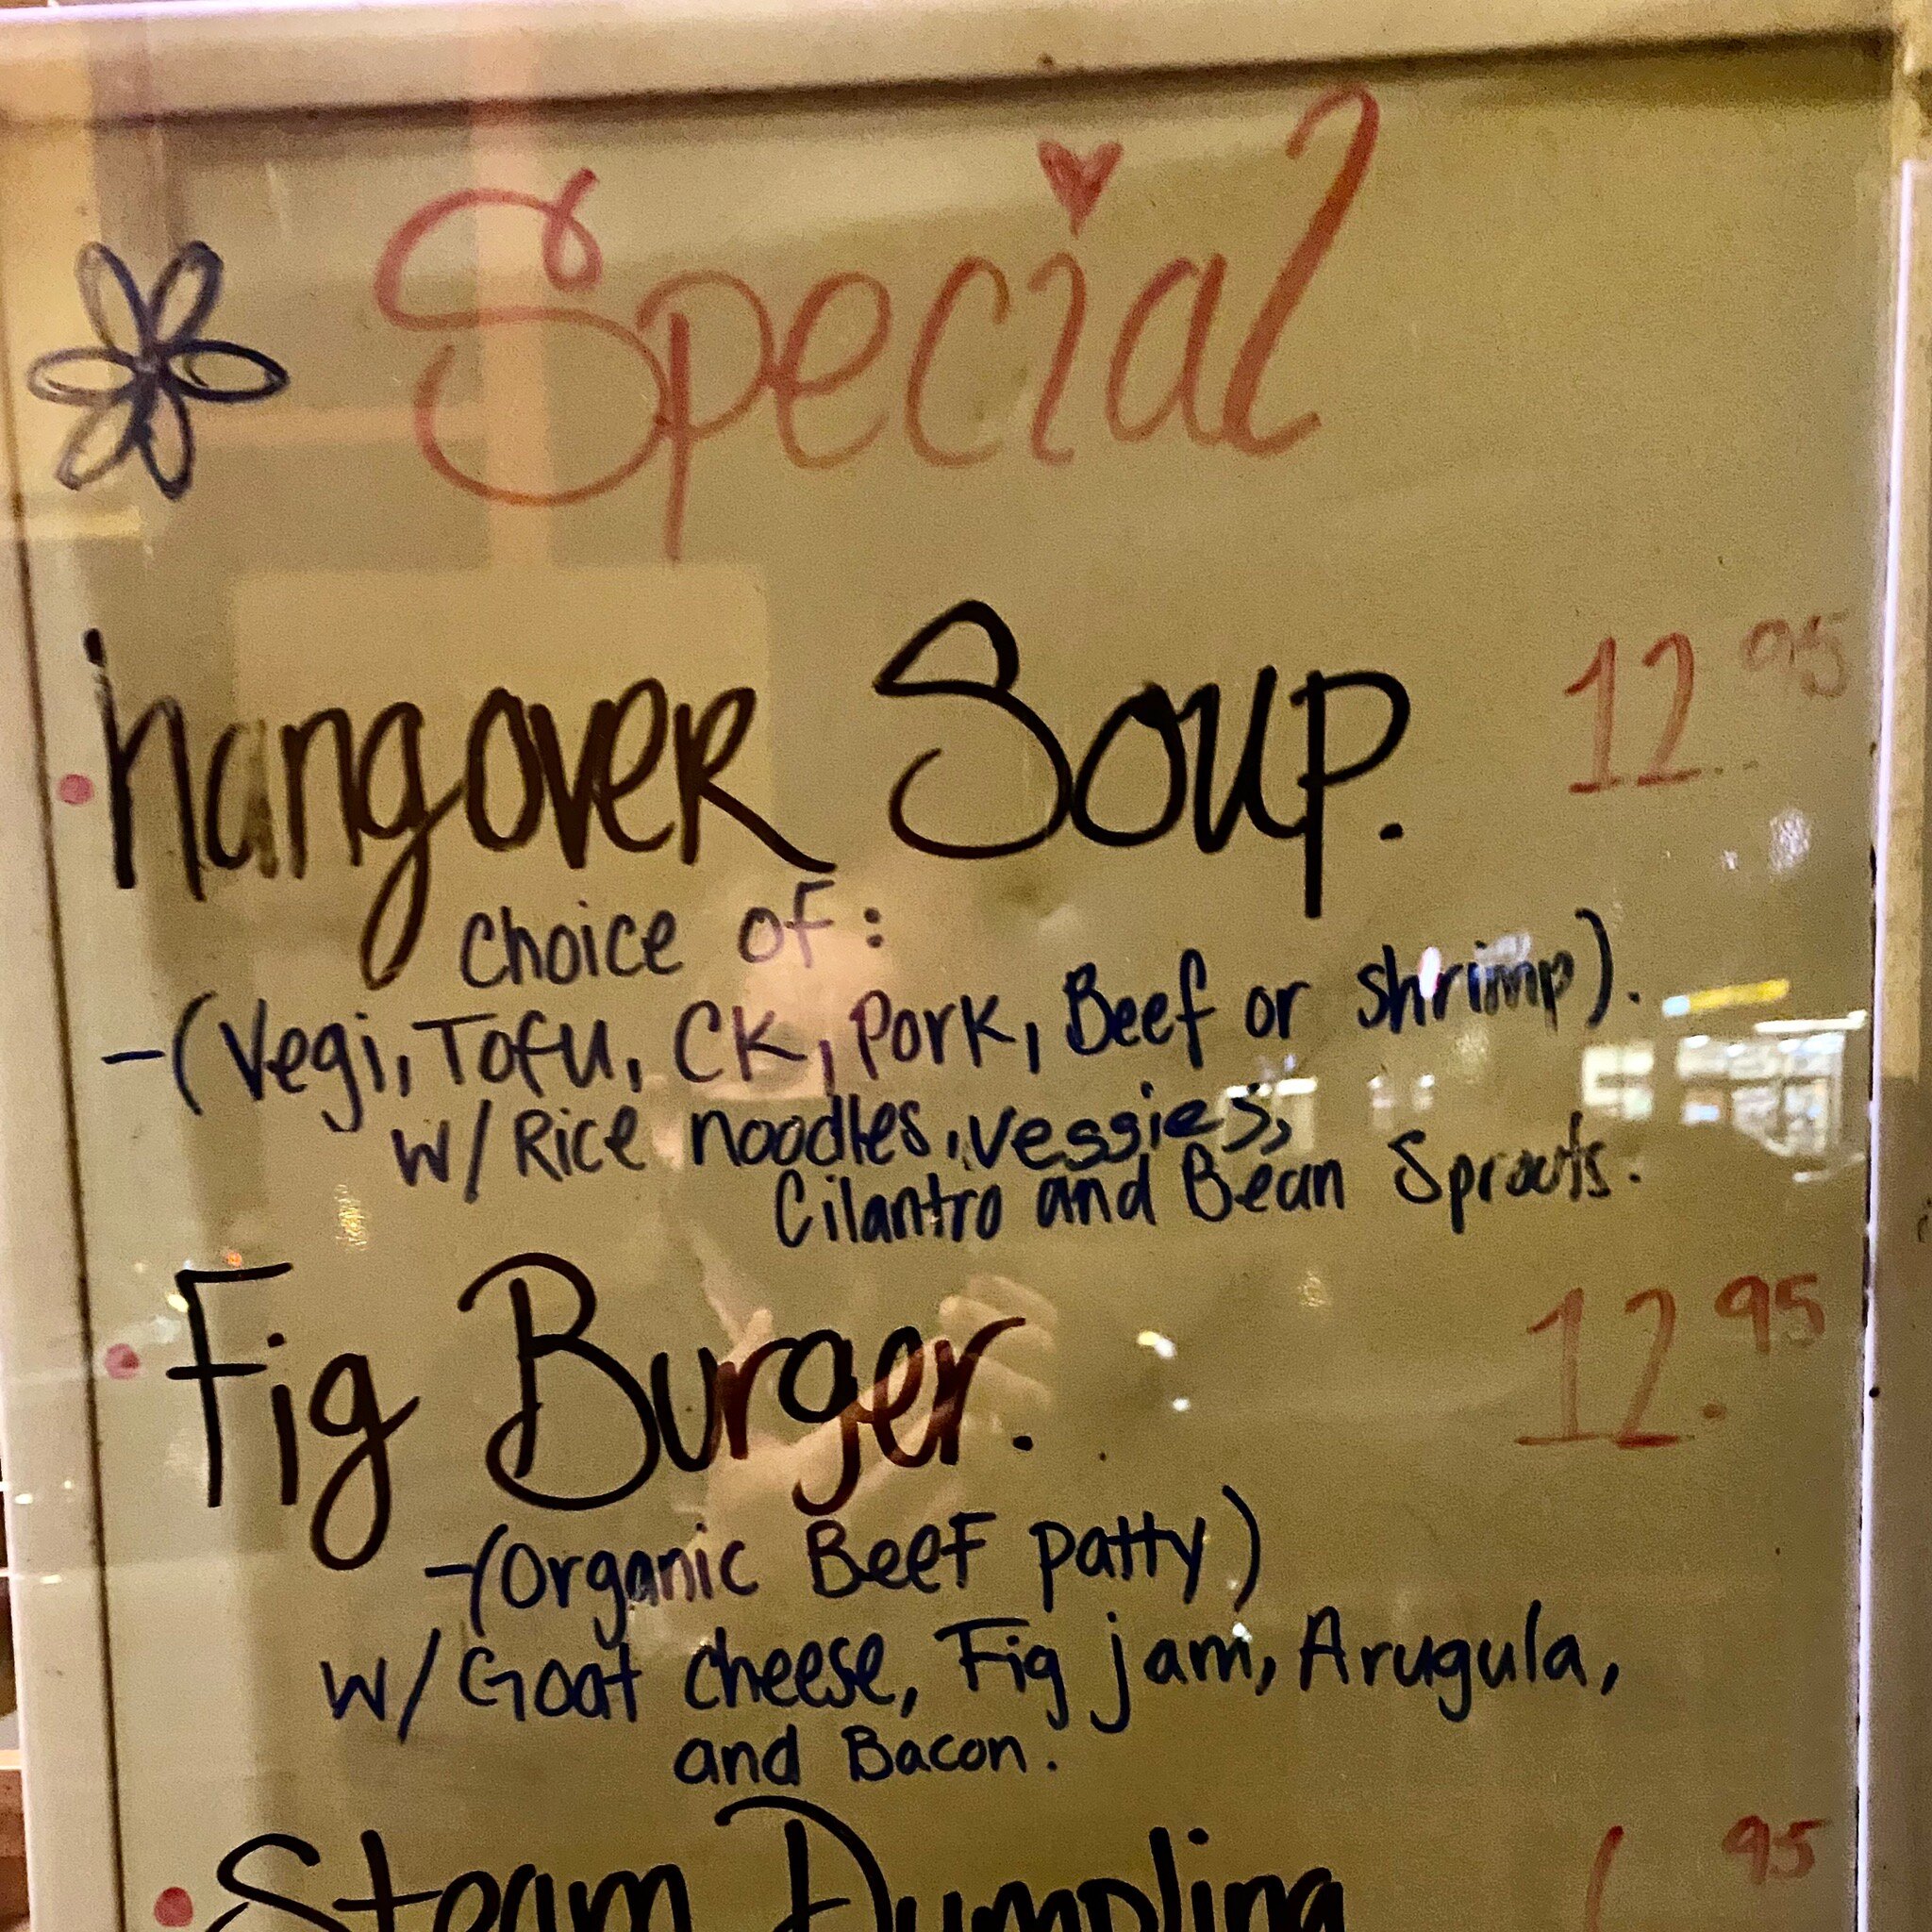 Special
hangover Soup. 12.95
choice of:
-(Vegi, Tofu, CK, Pork, Beef or shrimp).
w/Rice noodles, veggies,
Cilantro and Bean Sprouts.
Fig Burger. 12.95
-(Organic Beef patty)
w/Goat cheese, Fig jam, Arugula,
and Bacon.
Steam Dumpling 95